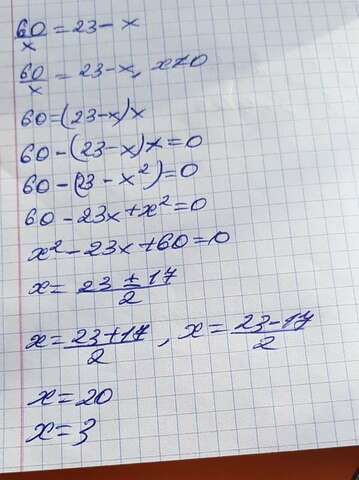 60/x = 23 - x
60/x = 23 - x, x ≠ 0
60 = (23 - x)x
60 - (23 - x)x = 0
60 - (23 - x²) = 0
60 - 23x + x² = 0
x² - 23x + 60 = 0
x = (23 ± 17)/2
x = (23 + 17)/2, x = (23 - 17)/2
x = 20
x = 3